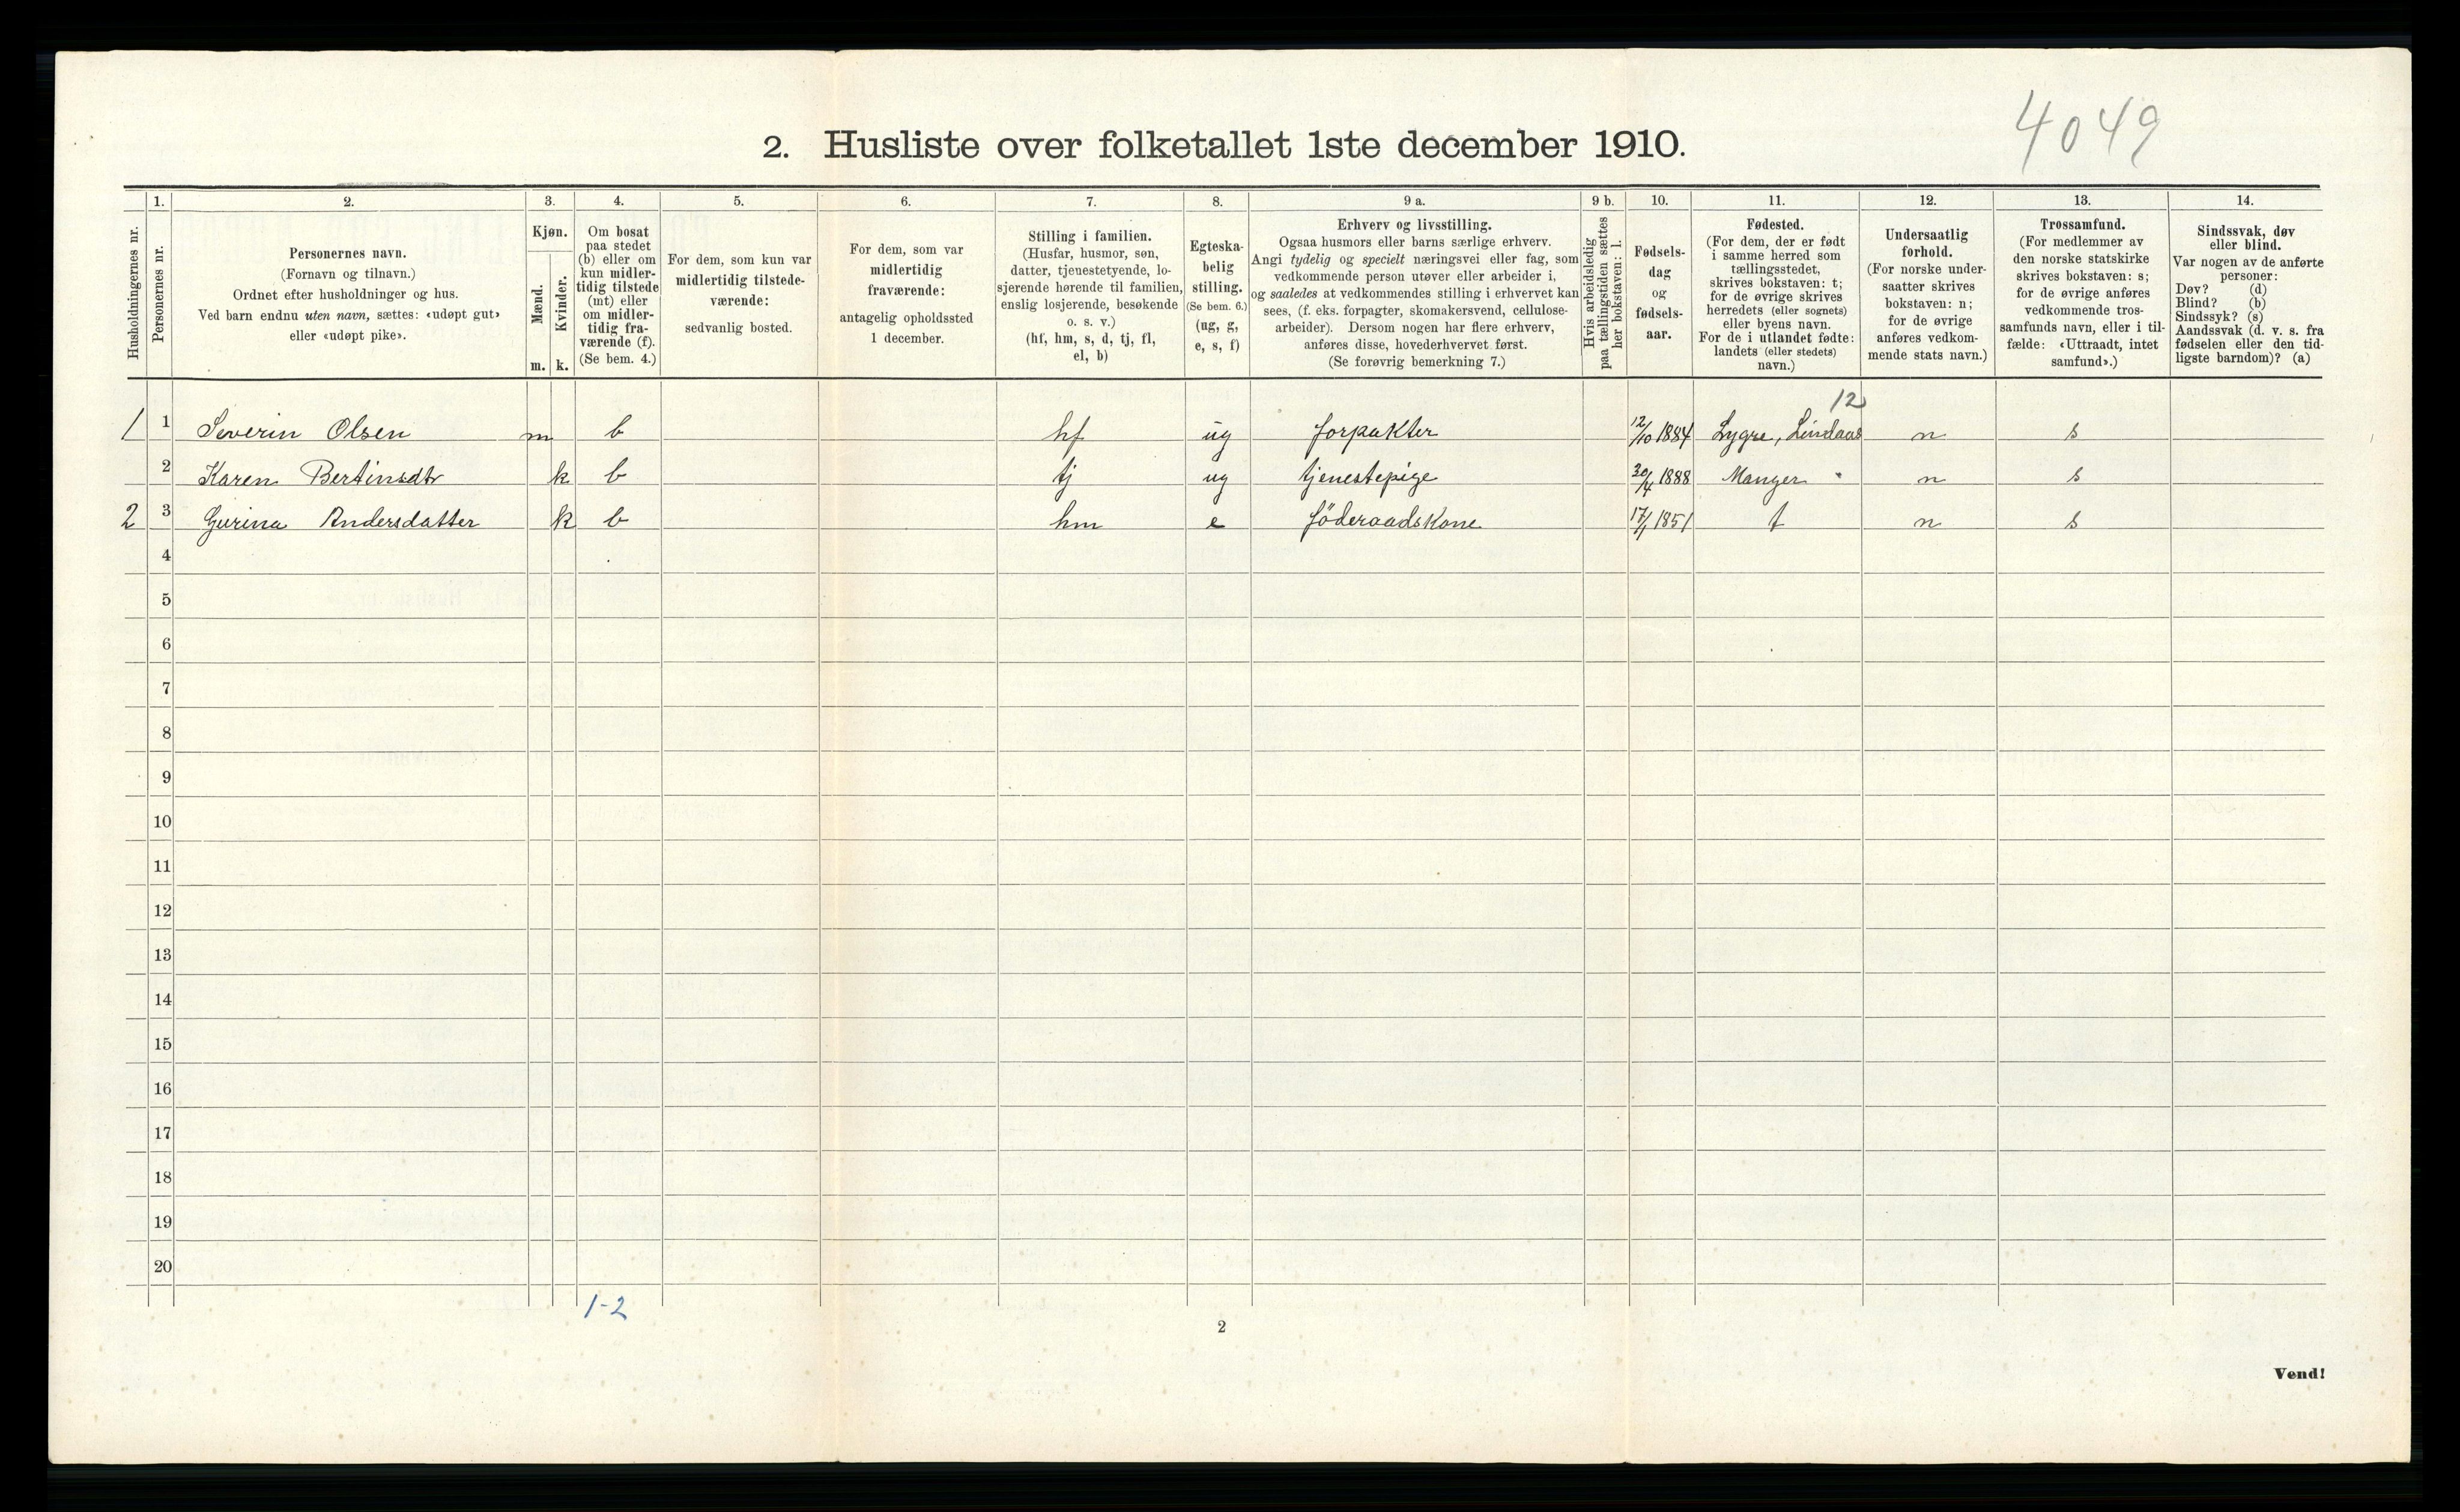 4049
2. Husliste over folketallet 1ste december 1910.
Husholdningernes nr.
1.
Personernes nr.
2.
Personernes navn.
(Fornavn og tilnavn.)
Ordnet efter husholdninger og hus.
Ved barn endnu uten navn, sættes: «udøpt gut»
eller «udøpt pike».
3.
Kjøn.
Mænd.
m.
Kvinder.
k.
4.
Om bosat
paa stedet
(b) eller om
kun midler-
tidig tilstede
(mt) eller
om midler-
tidig fra-
værende (f).
(Se bem. 4.)
5.
For dem, som kun var
midlertidig tilstede-
værende:
sedvanlig bosted.
6.
For dem, som var
midlertidig
fraværende:
antagelig opholdssted
1 december.
7.
Stilling i familien.
(Husfar, husmor, søn,
datter, tjenestetyende, lo-
sjerende hørende til familien,
enslig losjerende, besøkende
o. s. v.)
(hf, hm, s, d, tj, fl,
el, b)
8.
Egteska-
belig
stilling.
(Se bem. 6.)
(ug, g,
e, s, f)
9 a.
Erhverv og livsstilling.
Ogsaa husmors eller barns særlige erhverv.
Angi tydelig og specielt næringsvei eller fag, som
vedkommende person utøver eller arbeider i,
og saaledes at vedkommendes stilling i erhvervet kan
sees, (f. eks. forpagter, skomakersvend, cellulose-
arbeider). Dersom nogen har flere erhverv,
anføres disse, hovederhvervet først.
(Se forøvrig bemerkning 7.)
9 b.
Hvis arbeidsledig
paa tællingstiden sættes
her bokstaven: l.
10.
Fødsels-
dag
og
fødsels-
aar.
11.
Fødested.
(For dem, der er født
i samme herred som
tællingsstedet,
skrives bokstaven: t;
for de øvrige skrives
herredets (eller sognets)
eller byens navn.
For de i utlandet fødte:
landets (eller stedets)
navn.)
12.
Undersaatlig
forhold.
(For norske under-
saatter skrives
bokstaven: n;
for de øvrige
anføres vedkom-
mende stats navn.)
13.
Trossamfund.
(For medlemmer av
den norske statskirke
skrives bokstaven: s;
for de øvrige anføres
vedkommende tros-
samfunds navn, eller i til-
fælde: «Uttraadt, intet
samfund».)
14.
Sindssvak, døv
eller blind.
Var nogen av de anførte
personer:
Døv? (d)
Blind? (b)
Sindssyk? (s)
Aandssvak (d. v. s. fra
fødselen eller den tid-
ligste barndom)? (a)
12
1 1 Severin Olsen m b hf ug forpakter 12/10 1884 Lygre, Lindaas n s
2 Karen Bertinsdtr k b tj ug tjenestepige 30/4 1888 Manger n s
2 3 Gurina Andersdatter k b hm e föderaadskone 17/1 1851 t n s
4
5
6
7
8
9
10
11
12
13
14
15
16
17
18
19
20
1-2
2
Vend!